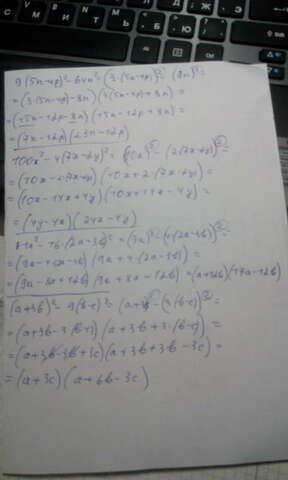 9(5n-4p)²-64n²=(3·(5n-4p))²-(8n)²=
=(3·(5n-4p)-8n)(3(5n-4p)+8n)=
=(15n-12p-8n)(15n-12p+8n)=
=(7n-12p)(23n-12p)
100x²-4(7x-2y)²=(10x)²-(2(7x-2y))²=
=(10x-2(7x-2y))(10x+2(7x-2y))=
=(10x-14x+4y)(10x+14x-4y)=
=(4y-4x)(24x-4y)
81a²-16(2a-3b)²=(9a)²-(4(2a-3b))²=
=(9a-4(2a-3b))(9a+4(2a-3b))=
=(9a-8a+12b)(9a+8a-12b)=(a+12b)(17a-12b)
(a+3b)²-9(b-c)²=(a+3b)²-(3(b-c))²=
=(a+3b-3(b-c))(a+3b+3(b-c))=
=(a+3b-3b+3c)(a+3b+3b-3c)=
=(a+3c)(a+6b-3c)